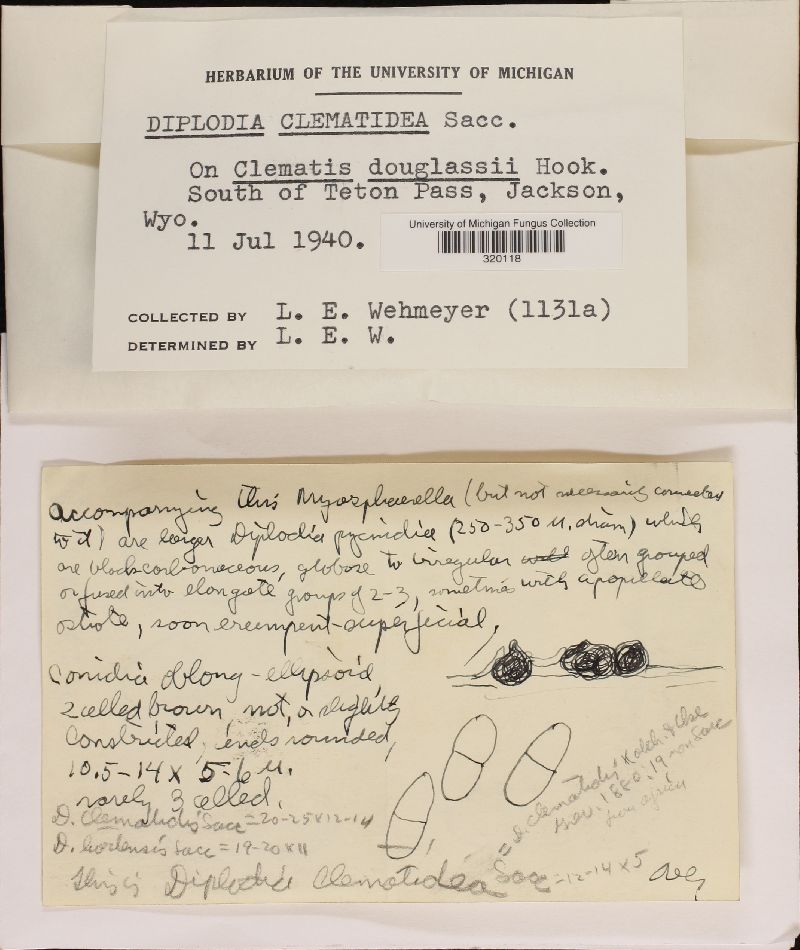 HERBARIUM OF THE UNIVERSITY OF MICHIGAN
DIPLODIA CLEMATIDEA Sacc.
On Clematis douglassii Hook.
South of Teton Pass, Jackson,
Wyo.
11 Jul 1940.
University of Michigan Fungus Collection
320118
COLLECTED BY L. E. Wehmeyer (1131a)
DETERMINED BY L. E. W.
accompanying this Mycosphaerella (but not necessarily connected
to it) are larger Diplodia pycnidia (250-350 u. diam) which
are black carbonaceous, globose to irregular often grouped
or fused into elongate groups of 2-3, sometimes with a papillate
ostiole, soon erumpent-superficial,
Conidia oblong-ellipsoid,
2 celled brown not, or slightly
Constricted, ends rounded,
10.5-14 x 5-6 u.
rarely 3 celled.
D. Clematidis Sacc = 20-25 x 12-14
D. hortensis Sacc = 19-20 x 11
= D. Clematidis Kalch. & Cke
Grev. 1880:19 non Sacc
from
this is Diplodia Clematidea Sacc = 12-14 x 5